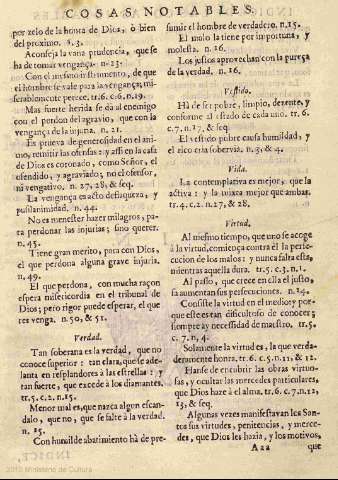 COSAS NOTABLES.
por zelo de la honra de Dios, ò bien
del proximo. n. 3.
Aconseja la vana prudencia, que se
ha de tomar vengança. n. 23.
Con el mismo instrumento, de que
el hombre se vale para la vengança; mi-
serablemente perece. tr. 6. c. 6. n. 19.
Mas fuerte herida se dà al enemigo
con el perdon del agravio, que con la
vengança de la injuria. n. 21.
Es prueva de generosidad en el ani-
mo, remitir las ofensas: y assi en la casa
de Dios es coronado, como Señor, el
ofendido, y agraviado; no el ofensor,
ni vengativo. n. 27, 28, & seq.
La vengança es acto de flaqueza, y
pusilanimidad. n. 44.
No es menester hazer milagros, pa-
ra perdonar las injurias; sino querer.
n. 45.
Tiene gran merito, para con Dios,
el que perdona alguna grave injuria.
n. 49.
El que perdona, con mucha raçon
espera misericordia en el tribunal de
Dios; pero rigor puede esperar, el que
se venga. n. 50, & 51.
Verdad.
Tan soberana es la verdad, que no
conoce superior: tan clara, que se ade-
lanta en resplandores à las estrellas: y
tan fuerte, que excede à los diamantes.
tr. 5. c. 2. n. 15.
Menor mal es, que nazca algun escan-
dalo, que no, que se falte à la verdad.
n. 25.
Con humilde abatimiento hà de pre-
sumir el hombre de verdadero. n. 15.
El malo la tiene por importuna, y
molesta. n. 16.
Los justos aprovechan con la pureza
de la verdad. n. 16.
Vestido.
Hà de ser pobre, limpio, decente, y
conforme al estado de cada uno. tr. 6.
c. 7. n. 17, & seq.
El vestido pobre causa humildad, y
el rico cria sobervia. n. 3, & 4.
Vida.
La contemplativa es mejor, que la
activa: y la mixta mejor que ambas.
tr. 4. c. 2. n. 27, & 28.
Virtud.
Al mesmo tiempo, que uno se acoge
à la virtud, comiença contra èl la perse-
cucion de los malos: y nunca falta esta,
mientras aquella dura. tr. 5. c. 3. n. 1.
Al passo, que crece en ella el justo,
se aumentan sus persecuciones. n. 14.
Consiste la virtud en el medio: y por-
que este es tan dificultoso de conocer;
siempre ay necessidad de maestro. tr. 5.
c. 7. n. 4.
Solamente la virtud es, la que verda-
deramente honra. tr. 6. c. 5. n. 11, & 12.
Hanse de encubrir las obras virtuo-
sas, y ocultar las mercedes particulares,
que Dios haze à el alma. tr. 6. c. 7. n. 12,
13, & seq.
Algunas vezes manifestavan los San-
tos sus virtudes, penitencias, y merce-
des, que Dios les hazia, y los motivos,
Aaa que
2010 Ministerio de Cultura